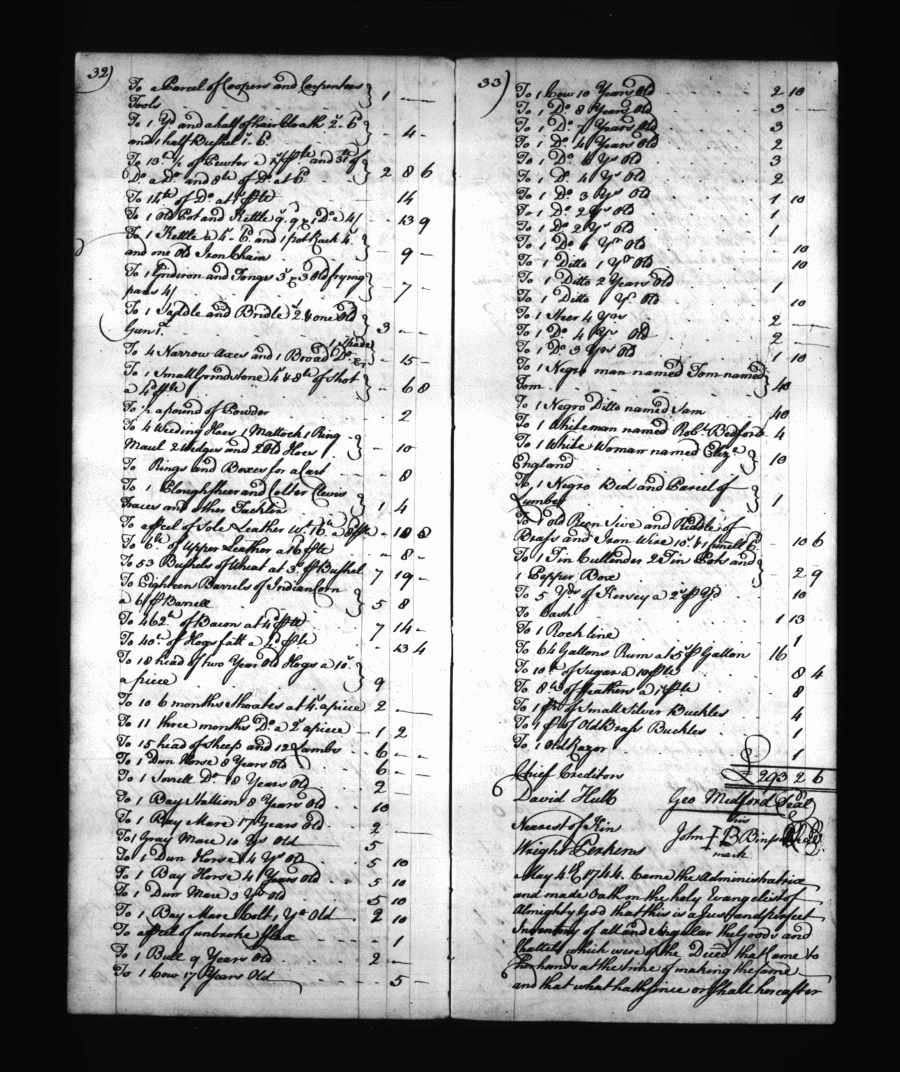 32)
To a Parcel of Coopers and Carpenters
Tools } 1 — —
To 1 Yd and a half of hair Cloath 2/6
and 1 half Bushel 1/6 } - 4 -
To 13 lb ½ of Pewter a and 3 lb of
Do a Do and 8 lb of Do at 6 } 2 8 6
To 14 lb of Do at 14
To 1 Old Pot and Kettle 13 9
To 1 Kettle a 4/6 and 1 pot Rack 4
and one old Iron Chain } - 9 -
To 1 Gridiron and Tongs 3/ & 3 Old frying
pans 4/ } - 7 -
To 1 Saddle and Bridle 2 & one Old
Gun } 3 - -
To 4 Narrow Axes and 1 Broad Do 1 Spade } - 15 -
To 1 Small Grindstone & 8 lb of Shot
a 4 d lb } - 6 8
To ½ a pound of Powder 2
To 4 Weeding Hoes 1 Mattock 1 Ring
Maul 2 Wedges and 2 Old Hoes } - 10
To Rings and Boxes for a Cart - 8
To 1 Plough sheer and Colter Clevis
Traces and other Tacklin } 1 4
To a ps of Sole Leather Wt 16 lb a 8 lb - 10 8
To 6 lb of Upper Leather a 16 lb - 8 -
To 53 Bushels of Wheat at 3/ Bushel 7 19 -
To Eighteen Barrels of Indian Corn
a 6/ Barrell } 5 8
To 462 lb of Bacon at 4d lb 7 14 -
To 40 lb of Hogs fatt a 4d lb - 13 4
To 18 head of two Year Old Hogs a 10/
a piece } 9
To 10 6 months Shoates at 4/ apiece 2 —
To 11 three months Do a 2/ apiece - 1 2
To 15 head of Sheep and 12 Lambs 6 - -
To 1 Dun Horse 8 Years Old 6 - -
To 1 Sorrell Do 8 Years Old 2 —
To 1 Bay Stallion 8 Years Old 10
To 1 Bay Mare 17 Years Old 2 —
To 1 Gray Mare 10 Yrs Old 5
To 1 Dun Horse 4 Yrs Old 5 10
To 1 Bay Horse 4 Years Old 5 10
To 1 Dun Mare 3 Yrs Old 5 10
To 1 Bay Mare Colt 1 Yr Old 2 10
To a pcel of unbroke flax 1
To 1 Bull 9 Years Old 2 —
To 1 Cow 17 Years Old 5 -
33)
To 1 Cow 10 Years Old 2 10
To 1 Do 8 Years Old 3 —
To 1 Do 7 Years Old 3
To 1 Do 4 Years Old 2
To 1 Do Yrs Old 3
To 1 Do 4 Yrs Old 2
To 1 Do 3 Yrs Old 1 10
To 1 Do 2 Yrs Old 1
To 1 Do 2 Yrs Old 1
To 1 Do 6 Yrs Old 10
To 1 Ditto 1 Yr Old 10
To 1 Ditto 2 Years Old 1
To 1 Ditto Yr Old 10
To 1 Steer 4 Yrs 2 —
To 1 Do 4 Yrs Old 2 —
To 1 Do 3 Yrs Old 1 10
To 1 Negro man named Tom named
Tom } 40
To 1 Negro Ditto named Sam 40
To 1 White man named Robt Bedford 4
To 1 White Woman named Eliza
England } 10
To 1 Negro Bed and Parcel of
Lumber } 1
To 1 old Sive and Riddle of
Brass and Iron Wire 10/ & 1 funell 6 } 10 6
To 1 Tin Cullender 2 Tin Pots and
1 Pepper Box } 2 9
To 5 Yds of Kersey a 2/ Yd 10
To Cash 1 13
To 1 Rock line 1
To 64 Gallons Rum a 5/ Gallon 16
To 10 lb of Sugar a 10 lb 8 4
To 8 lb of feathers a 1/ lb 8
To 1 pr of Small Silver Buckles 4
To 1 pr of Old Brass Buckles 1
To 1 Old Razor 1
£ 293 2 6
Chief Creditors
David Hull Geo Medford Seal
Nearest of Kin John his I B mark Seal
Wright Perkins
May 4th 1744. Came the Administratrix
and made Oath on the holy Evangelist of
Almighty God that this is a Just and perfect
Inventory of all and Singular the goods and
Chattels which were of the Deced that came to
her hands at the time of making the same
and that what hath since or Shall hereafter